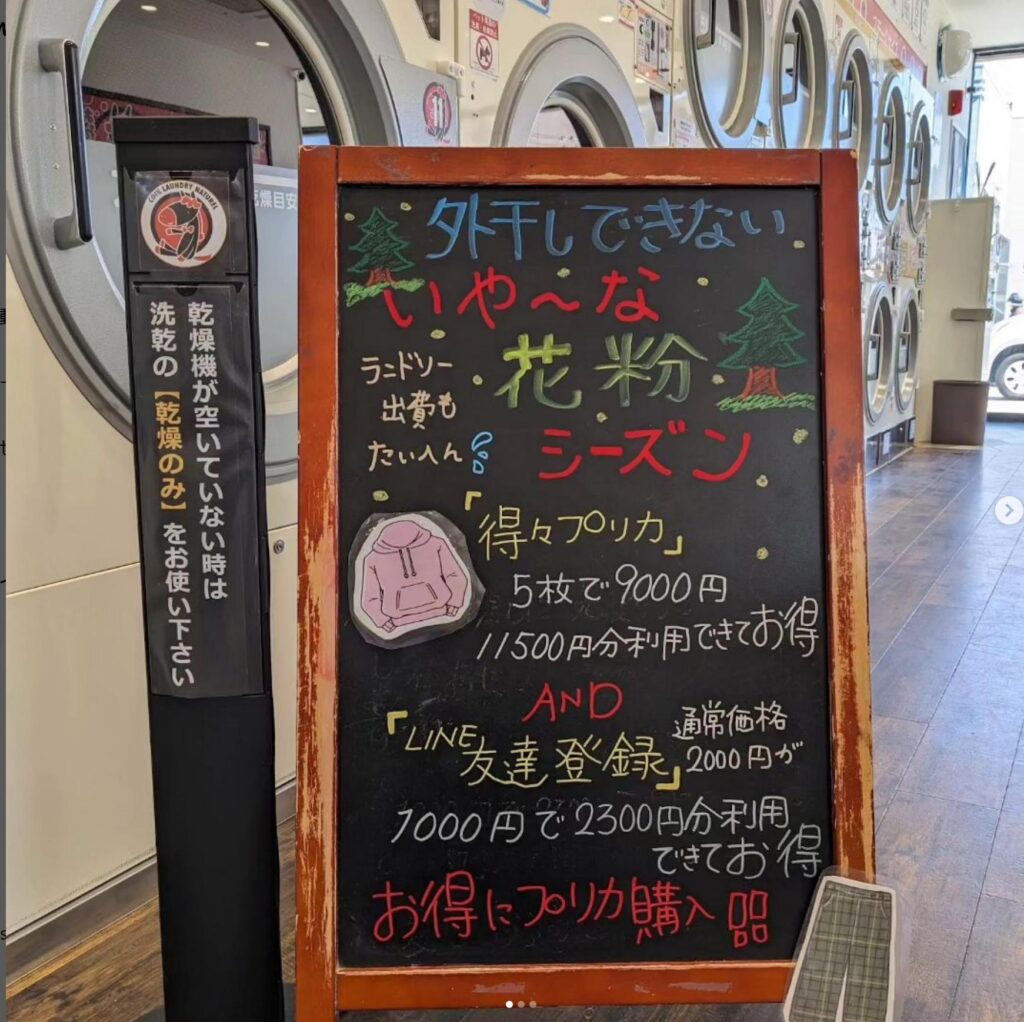 COIN LAUNDRY NATUREL
乾燥機が空いていない時は
洗乾の【乾燥のみ】をお使い下さい
11
乾燥目安
外干しできない
いや〜な
花粉
シーズン
ランドリー
出費も
たいへん
「得々プリカ」
5枚で9000円
11500円分利用できてお得
AND
「LINE友達登録」
通常価格
2000円が
1000円で2300円分利用
できてお得
お得にプリカ購入